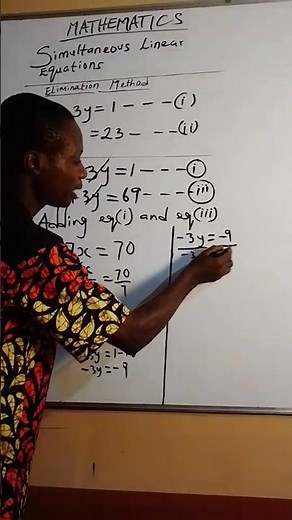 MATHEMATICS
Simultaneous Linear
Equations
Elimination Method
3y = 1 - - - (i)
= 23 - - - (ii)
3y = 1 - - - (i)
3y = 69 - - - (iii)
Adding eq(i) and eq(iii)
7x = 70
= 70
7
3y = 1 -
-3y = -9
-3y = -9
-3